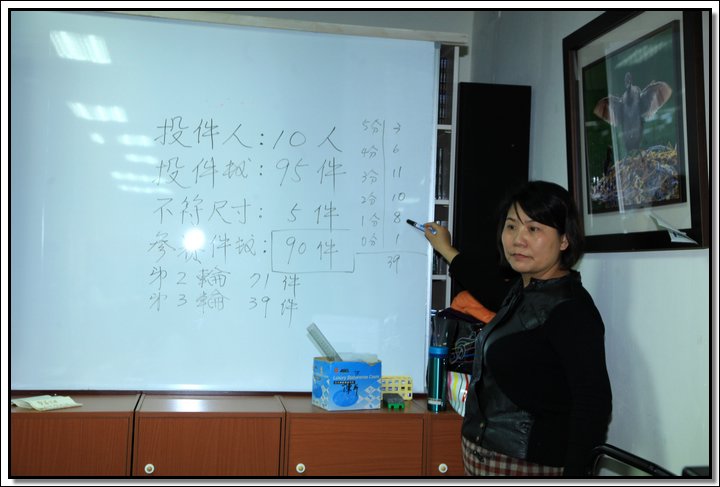 投件人：10人
投件数：95件
不符尺寸：5件
参赛件数：90件
第2輪 71件
第3輪 39件
5分 3
4分 6
3分 11
2分 10
1分 8
0分 1
39